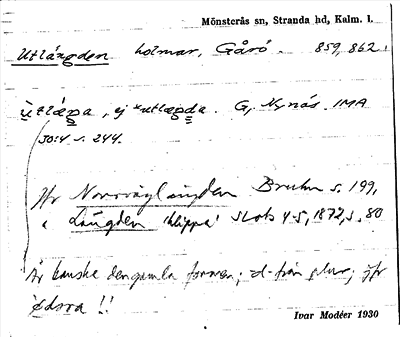 Mönsterås sn, Stranda hd, Kalm. l.
Utlängden holmar, Gårö. 859, 862.
utlæŋa, ej *utlæŋda. G, Nynäs. IMA
30:4 s. 244.
Jfr Norrväglängden Bruhn s. 199,
" Längden 'klippa' SLotb 45, 1872, s. 80
Är kanske den gamla formen; -d- från plur; jfr
Ödsra !!
Ivar Modéer 1930